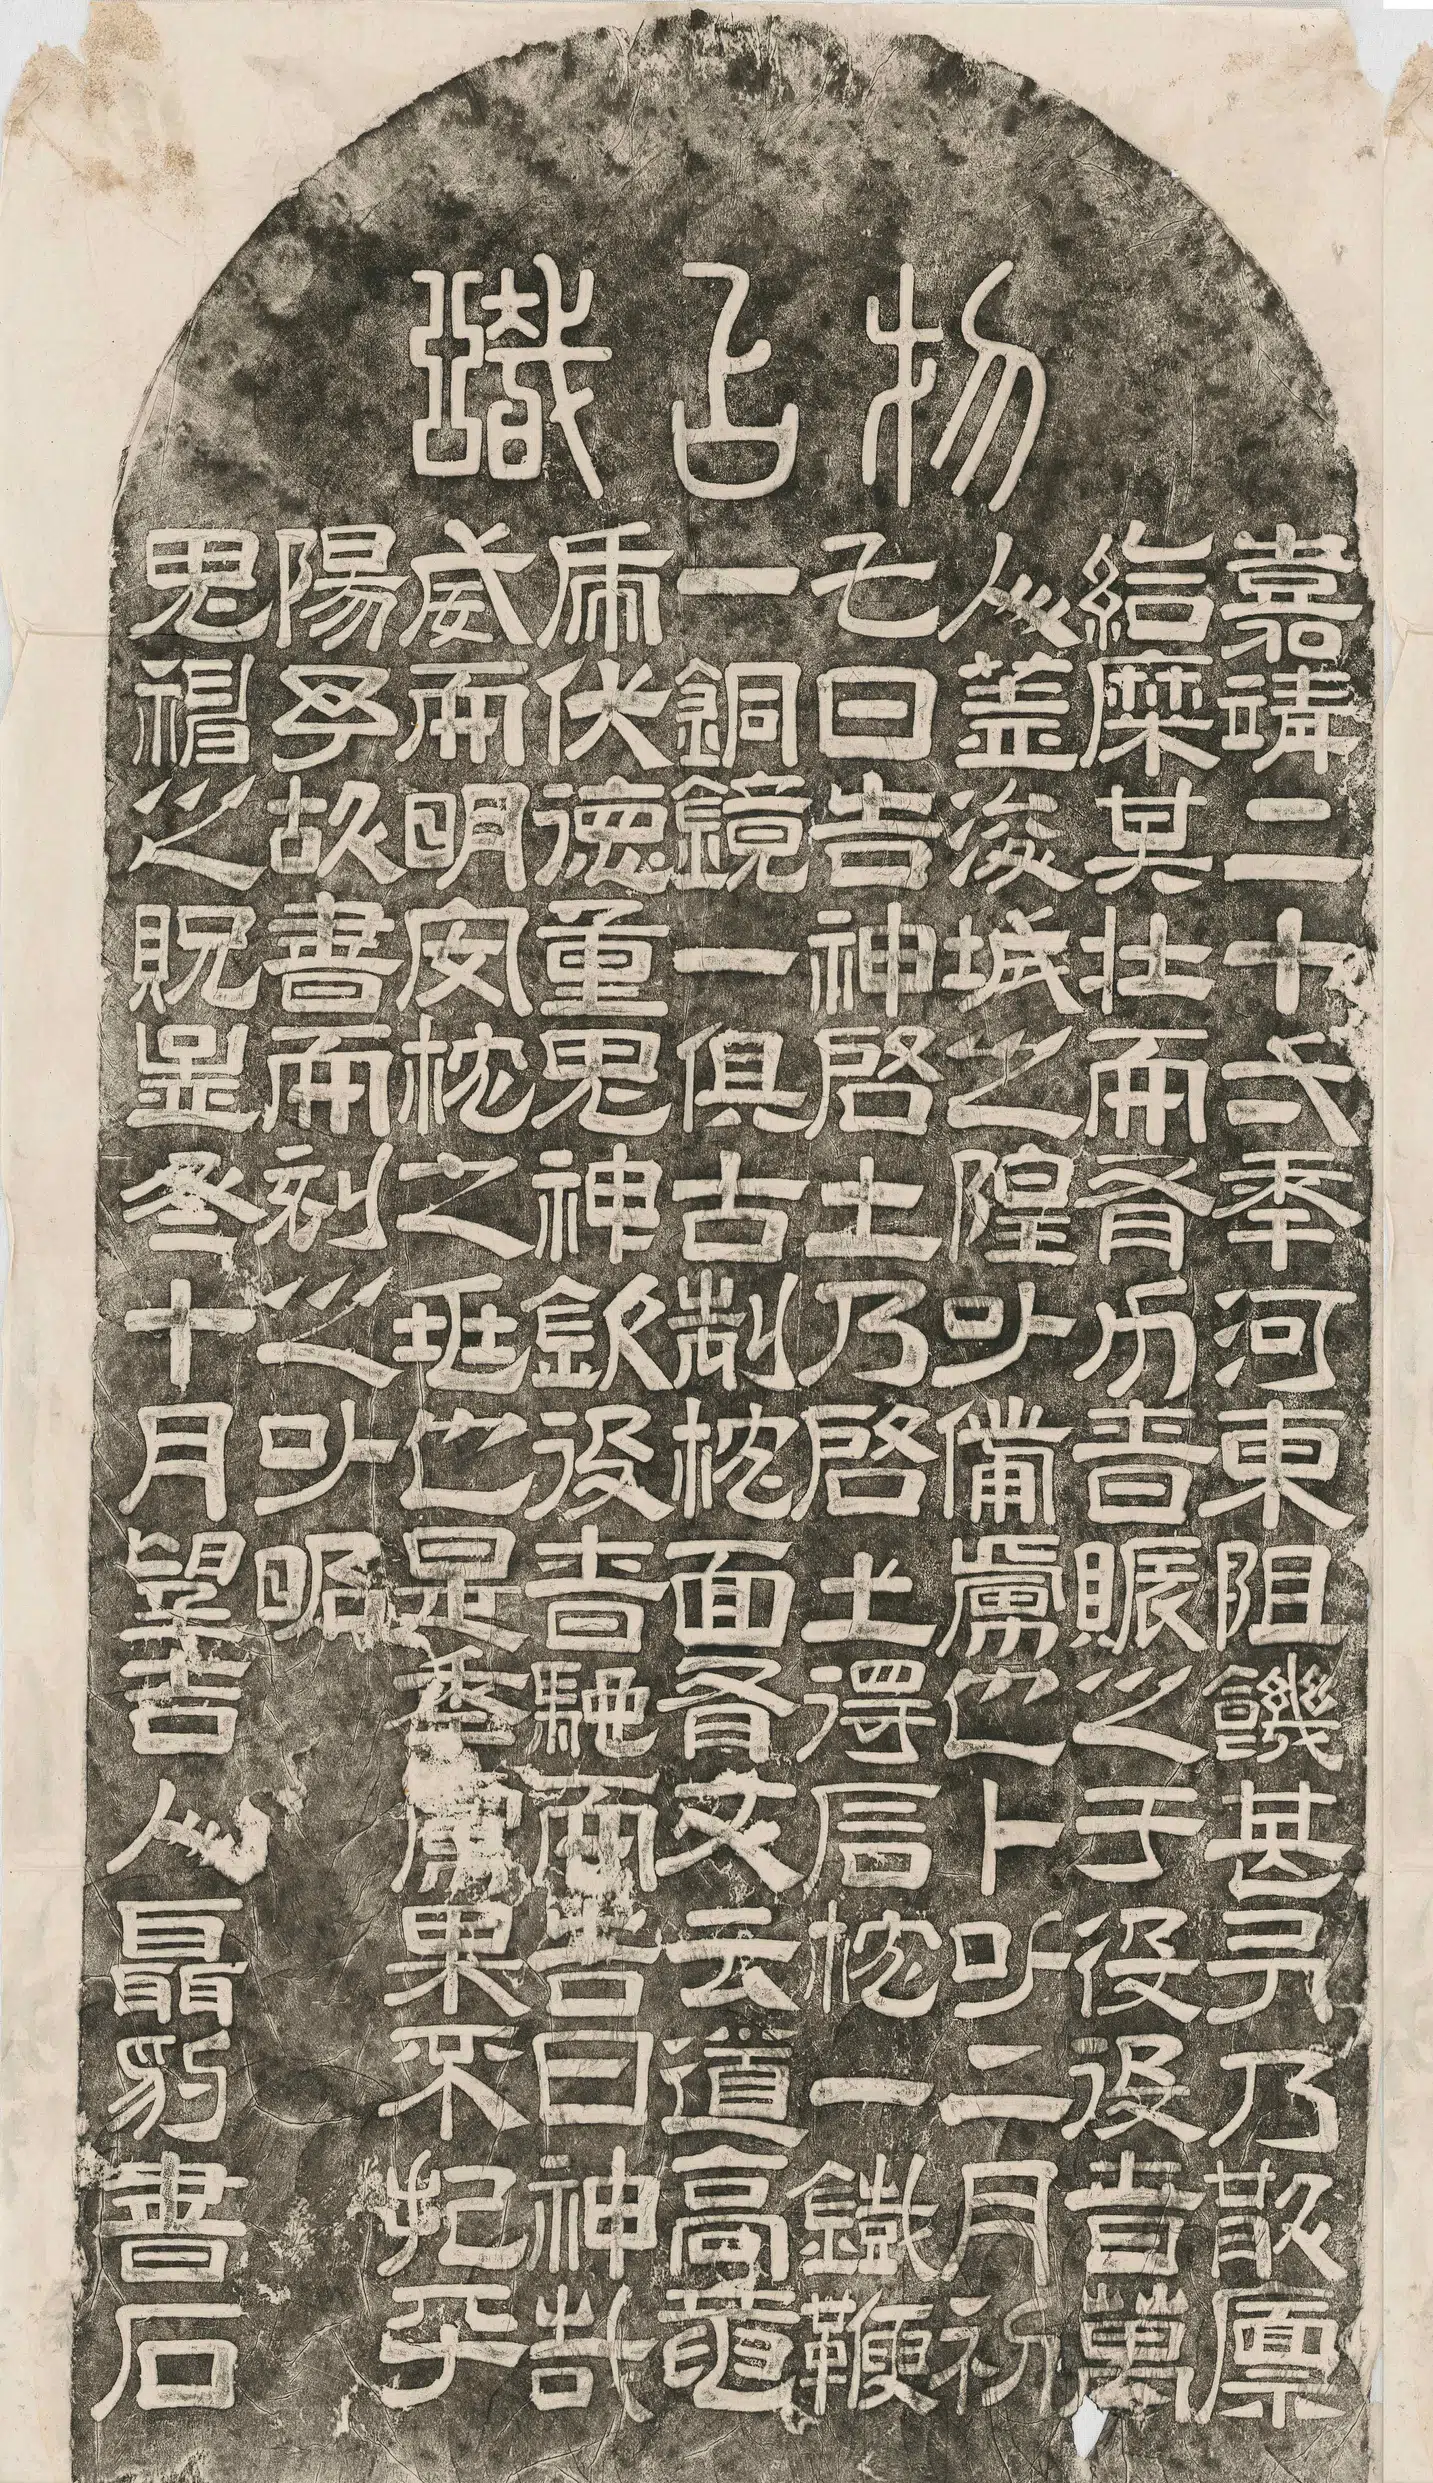 物占職
嘉靖二十弍秊河東阻饑甚予乃散廩
給糜其壯而有力者賑之于役役者萬
人蓋浚城之隍以備虜也卜以二月初
乙日告神啓土乃啓土得枕一鐵鞭
一銅鏡一俱古制枕面有文云道高龍
虎伏德重鬼神欽役者馳而告曰神哉
威而明安枕之垂也是秊虜果不犯平
陽予故書而刻之以昭
鬼神之貺是冬十月望吉人聶豹書石